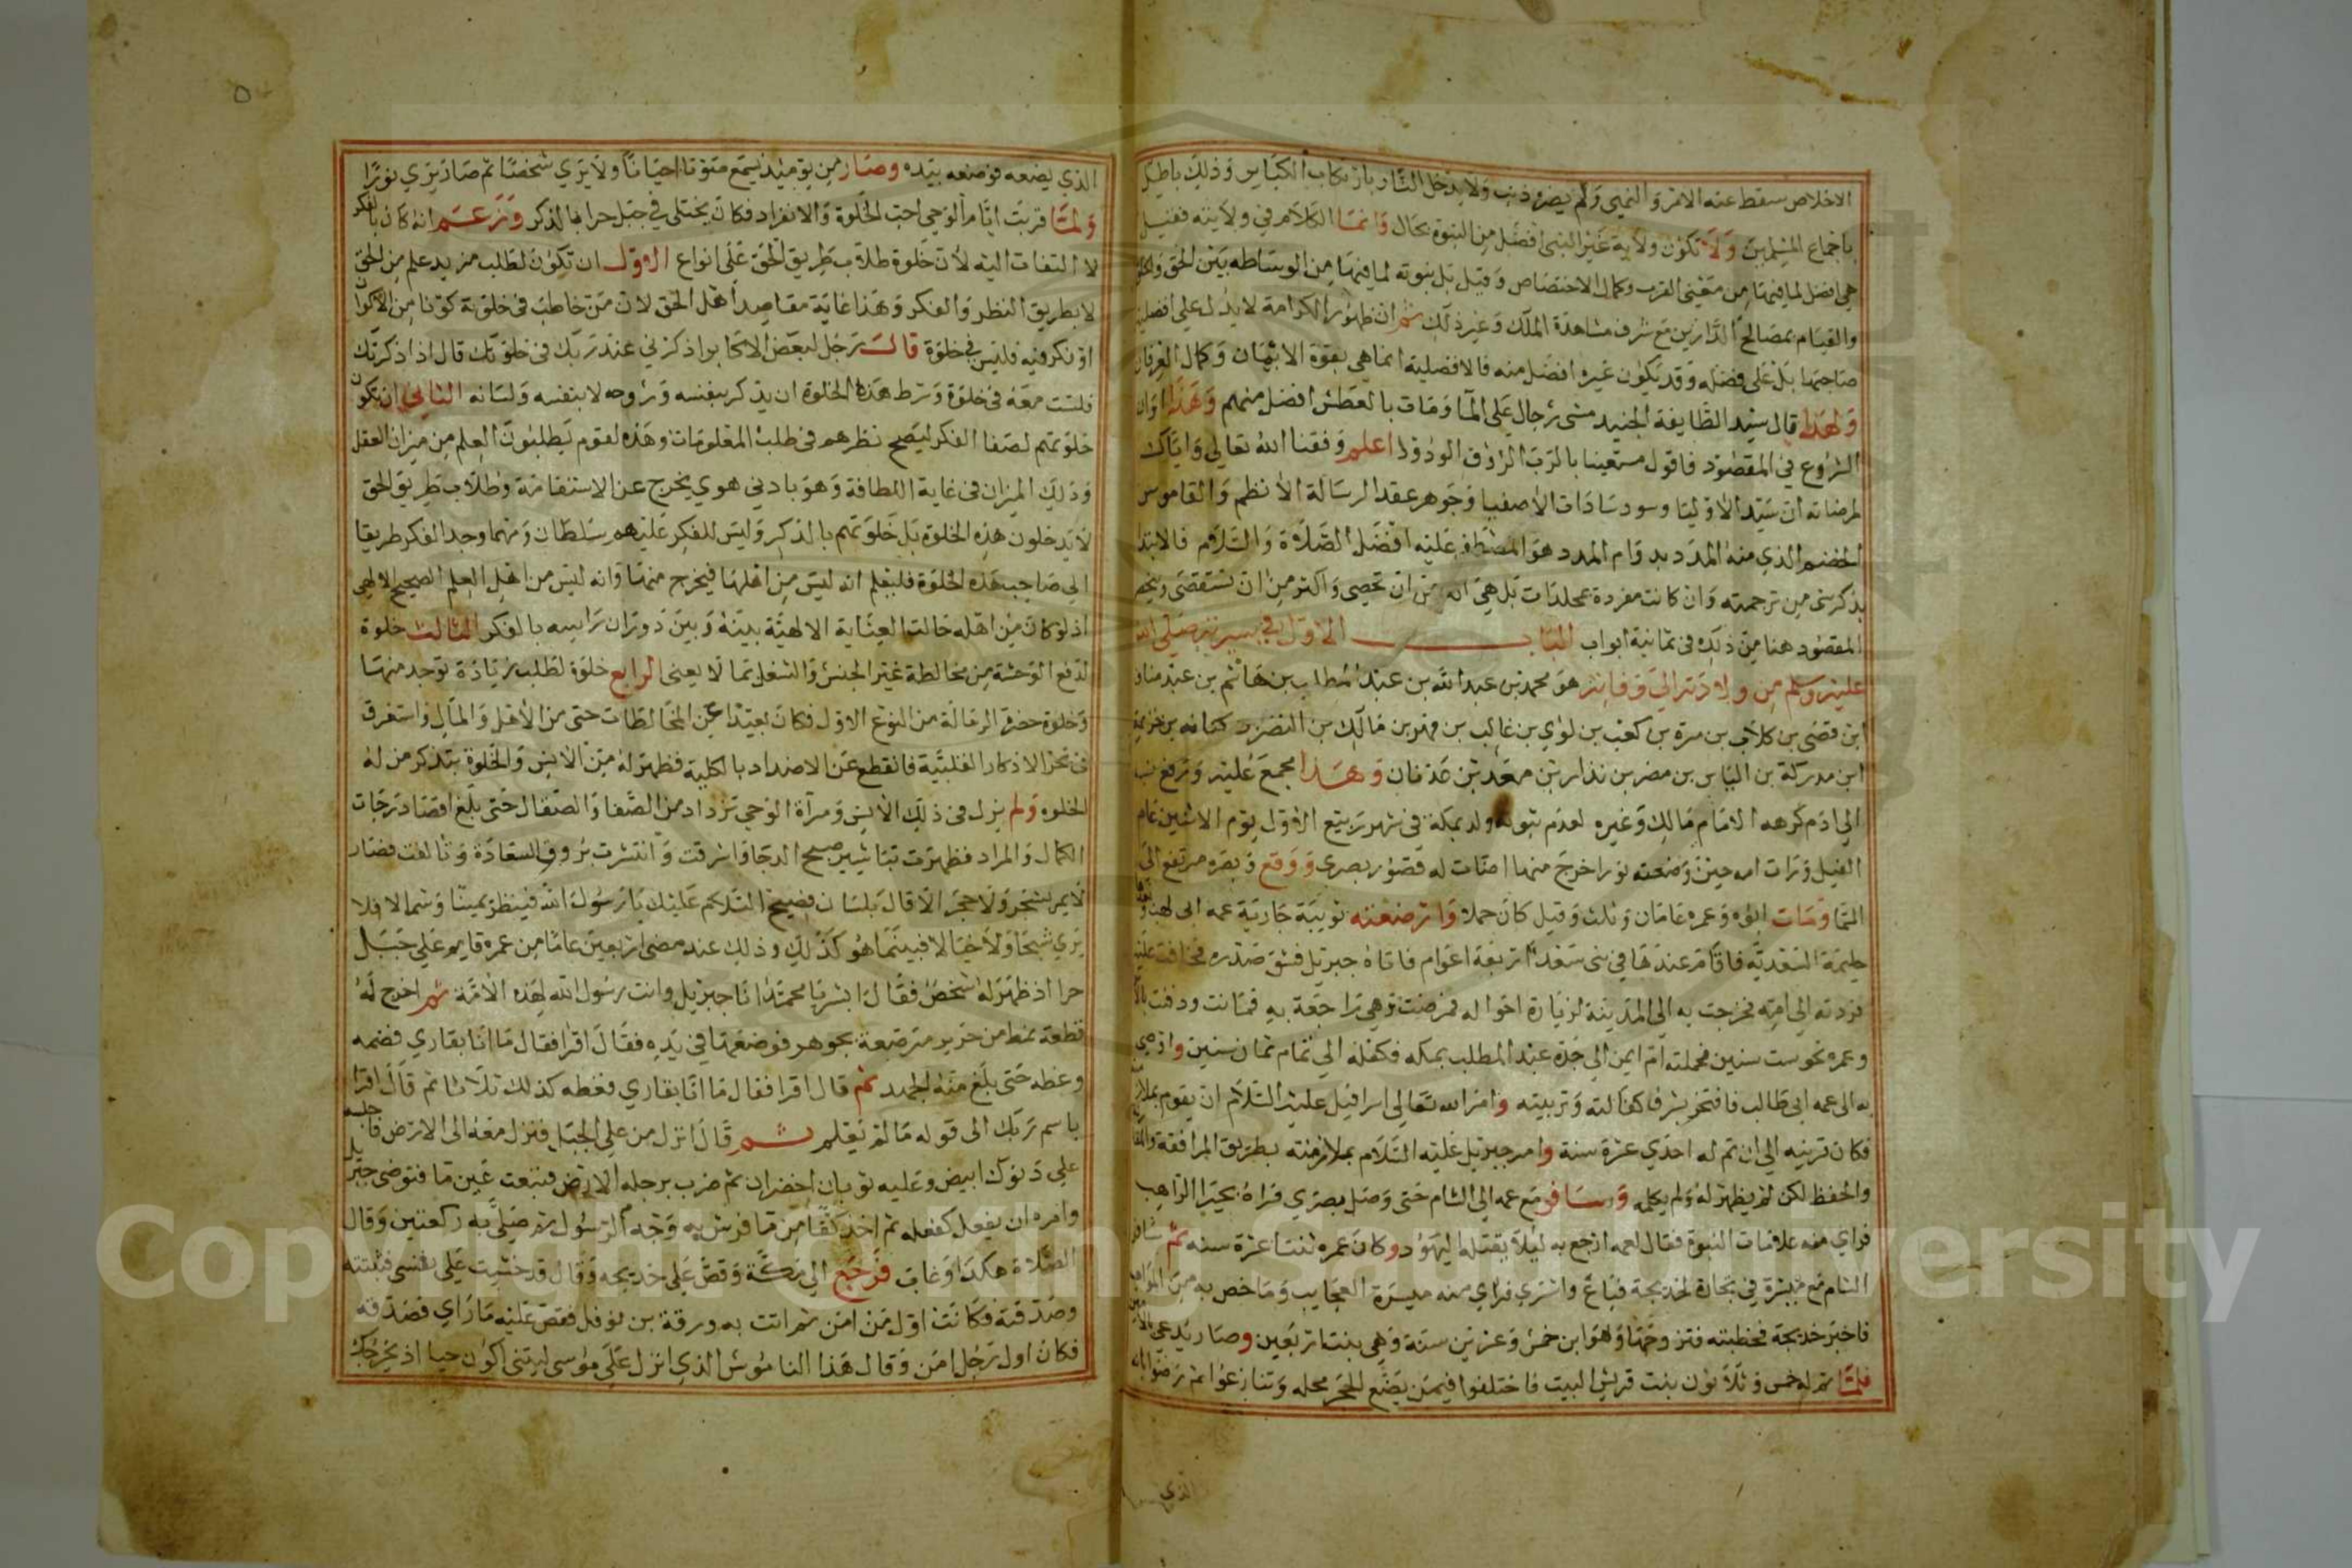 الاخلاص سقط عنه الامر والنهي ولم يضره ذنب ولا يدخل النار بارتكاب الكباير وذلك باطل
باجماع المسلمين ولا تكون ولاية غير النبي افضل من النبوة بحال وانما الكلام في ولايته فقيل
هي افضل لما فيها من معنى القرب وكمال الاختصاص وقيل بل نبوته لما فيها من الوساطه بين الحق والخلق
والقيام بمصالح الدارين مع شرف مشاهدة الملك وغير ذلك ثم ان ظهور الكرامة لا يدل على افضلية
صاحبها بل على فضله وقد يكون غيره افضل منه فالافضلية انما هي بقوة الايمان وكمال العرفان
ولهذا قال سيد الطايفة الجنيد مشى رجال على الما ومات بالعطش افضل منهم وهذا اوان
الشروع في المقصود فاقول مستعينا بالرب الرؤف الودود اعلم وفقنا الله تعالى واياك
لمرضاته ان سيد الاوليا وسود سادات الاصفيا وجوهر عقد الرسالة الانظم والقاموس
الخضم الذي منه المدد بدوام المدد هو المصطفى عليه افضل الصلاة والسلام فالابتدا
بذكر شي من ترجمته وان كانت مفردة بمجلدات بل هي اكثر من ان تحصى واكثر من ان تستقصى
المقصود هنا من ذلك في ثمانية ابواب الباب الاول في سيرته صلى الله
عليه وسلم من ولادته الى وفاته هو محمد بن عبد الله بن عبد المطلب بن هاشم بن عبد مناف
ابن قصي بن كلاب بن مرة بن كعب بن لؤي بن غالب بن فهر بن مالك بن النضر بن كنانه بن خزيمة
ابن مدركة بن الياس بن مضر بن نذار بن معد بن عدنان وهذا مجمع عليه ورفع نسبه
الى ادم كرهه الامام مالك وغيره لعدم ثبوته ولد بمكة في شهر ربيع الاول يوم الاثنين عام
الفيل ورات امه حين وضعته نورا خرج منها اضات له قصور بصرى ووقع وبصره مرتفع الى
السما ومات ابوه وعمره عامان وثلث وقيل كان حملا وارضعته ثويبة جارية عمه ابي لهب
حليمة السعدية فاقام عندها في بني سعد اربعة اعوام فاتاه جبريل فشق صدره فخافت عليه
فردته الى امه فخرجت به الى المدينة لزيارة اخواله فمرضت وهي راجعة به فماتت ودفنت
وعمره نحو ست سنين فحملته ام ايمن الى جده عبد المطلب بمكه فكفله الى تمام ثمان سنين واوصى
به الى عمه ابي طالب فافتخر بشرف كفالته وتربيته وامر الله تعالى اسرافيل عليه السلام ان يقوم
فكان قرينه الى ان تم له احدي عشرة سنة وامر جبريل عليه السلام بملازمته بطريق المرافقة
والحفظ لكن لم يظهر له ولم يكلمه وسافر مع عمه الى الشام حتى وصل بصرى فراه بحيرا الراهب
فراي منه علامات النبوة فقال لعمه ارجع به ليلا يقتله اليهود وكان عمره ثنتا عشرة سنه ثم سافر
الشام مع ميسرة في تجارة لخديجة فباع واشترى فراي منه ميسرة العجايب وما خص به من المواهب
فاخبر خديجة فخطبته فتزوجها وهو ابن خمس وعشرين سنة وهي بنت اربعين وصار يدعي بالامين
فلما تم له خمس وثلاثون بنت قريش البيت فاختلفوا فيمن يضع الحجر محله وتنازعوا ثم رضوا
الذي
الذي يضعه فوضعه بيده وصار من يوميذ يسمع صوتا احيانا ولا يري شخصا ثم صار يري نورا
ولما قربت ايام الوحي احب الخلوة والانفراد فكان يختلي في جبل حرا بالذكر وزعم انه كان بالفكر
لا التفات اليه لان خلوة طلاب طريق الحق على انواع الاول ان تكون لطلب مزيد علم من الحق
لا بطريق النظر والفكر وهذا غاية مقاصد اهل الحق لان من خاطب في خلوته كونا من الاكوان
او فكر فيه فليس في خلوة قال رجل لبعض الاكابر اذكرني عند ربك في خلوتك قال اذا ذكرتك
فلست معه في خلوة وشرط هذه الخلوة ان يذكر بنفسه وروحه لا بنفسه ولسانه الثاني ان تكون
خلوتهم لصفا الفكر ليصح نظرهم في طلب المعلومات وهذه لقوم يطلبون العلم من ميزان العقل
وذلك الميزان في غاية اللطافة وهو بادني هوي يخرج عن الاستقامة وطلاب طريق الحق
لا يدخلون هذه الخلوة بل خلوتهم بالذكر وليس للفكر عليهم سلطان ومهما وجد الفكر طريقا
الى صاحب هذه الخلوة فليعلم انه ليس من اهلها فيخرج منها وانه ليس من اهل العلم الصحيح الالهي
اذ لو كان من اهله حالت العناية الالهية بينه وبين دوران راسه بالفكر الثالث خلوة
لدفع الوحشة من مخالطة غير الجنس والشغل بما لا يعني الرابع خلوة لطلب زيادة توجد منها
وخلوة حضرة الرسالة من النوع الاول فكان بعيدا عن المخالطات حتى من الاهل والمال واستغرق
في بحر الاذكار القلبية فانقطع عن الاضداد بالكلية فظهر له من الانس والخلوة بتذكر من له
الخلوه ولم يزل في ذلك الانس ومرآة الوحي تزداد من الصفا والصقال حتى بلغ اقصا درجات
الكمال والمراد فظهرت تباشير صبح الدجا واشرقت وانتشرت بروق السعادة وتالفت فصار
لا يمر بشجر ولا حجر الا قال بلسان فصيح السلام عليك يا رسول الله فينظر يمينا وشمالا فلا
يري شبحا ولا خيالا فبينما هو كذلك وذلك عند مضى اربعين عاما من عمره قايم على جبل
حرا اذ ظهر له شخص فقال ابشر يا محمد انا جبريل وانت رسول الله لهذه الامة ثم اخرج له
قطعة نمط من حرير مرصعة بجوهر فوضعها في يده فقال اقرا فقال ما انا بقاري فضمه
وغطه حتى بلغ منه الجهد ثم قال اقرا فقال ما انا بقاري فغطه كذلك ثلاثا ثم قال اقرا
باسم ربك الى قوله ما لم يعلم ثم قال انزل من على الجبل فنزل معه الى الارض فاجلسه
على درنوك ابيض وعليه ثوبان اخضران ثم ضرب برجله الارض فنبعت عين ما فتوضى جبريل
وامره ان يفعل كفعله ثم اخذ كفا من ما فرش به وجه الرسول ثم صلى به ركعتين وقال
الصلاة هكذا وغاب فرجع الى مكة وقص على خديجه وقال قد خشيت على نفسي فثبتته
وصدقته فكانت اول من امن ثم اتت به ورقة بن نوفل فقص عليه ما راي فصدقه
فكان اول رجل امن وقال هذا الناموس الذي انزل على موسى ليتني اكون حيا اذ يخرجك
Copyright © King Saud University